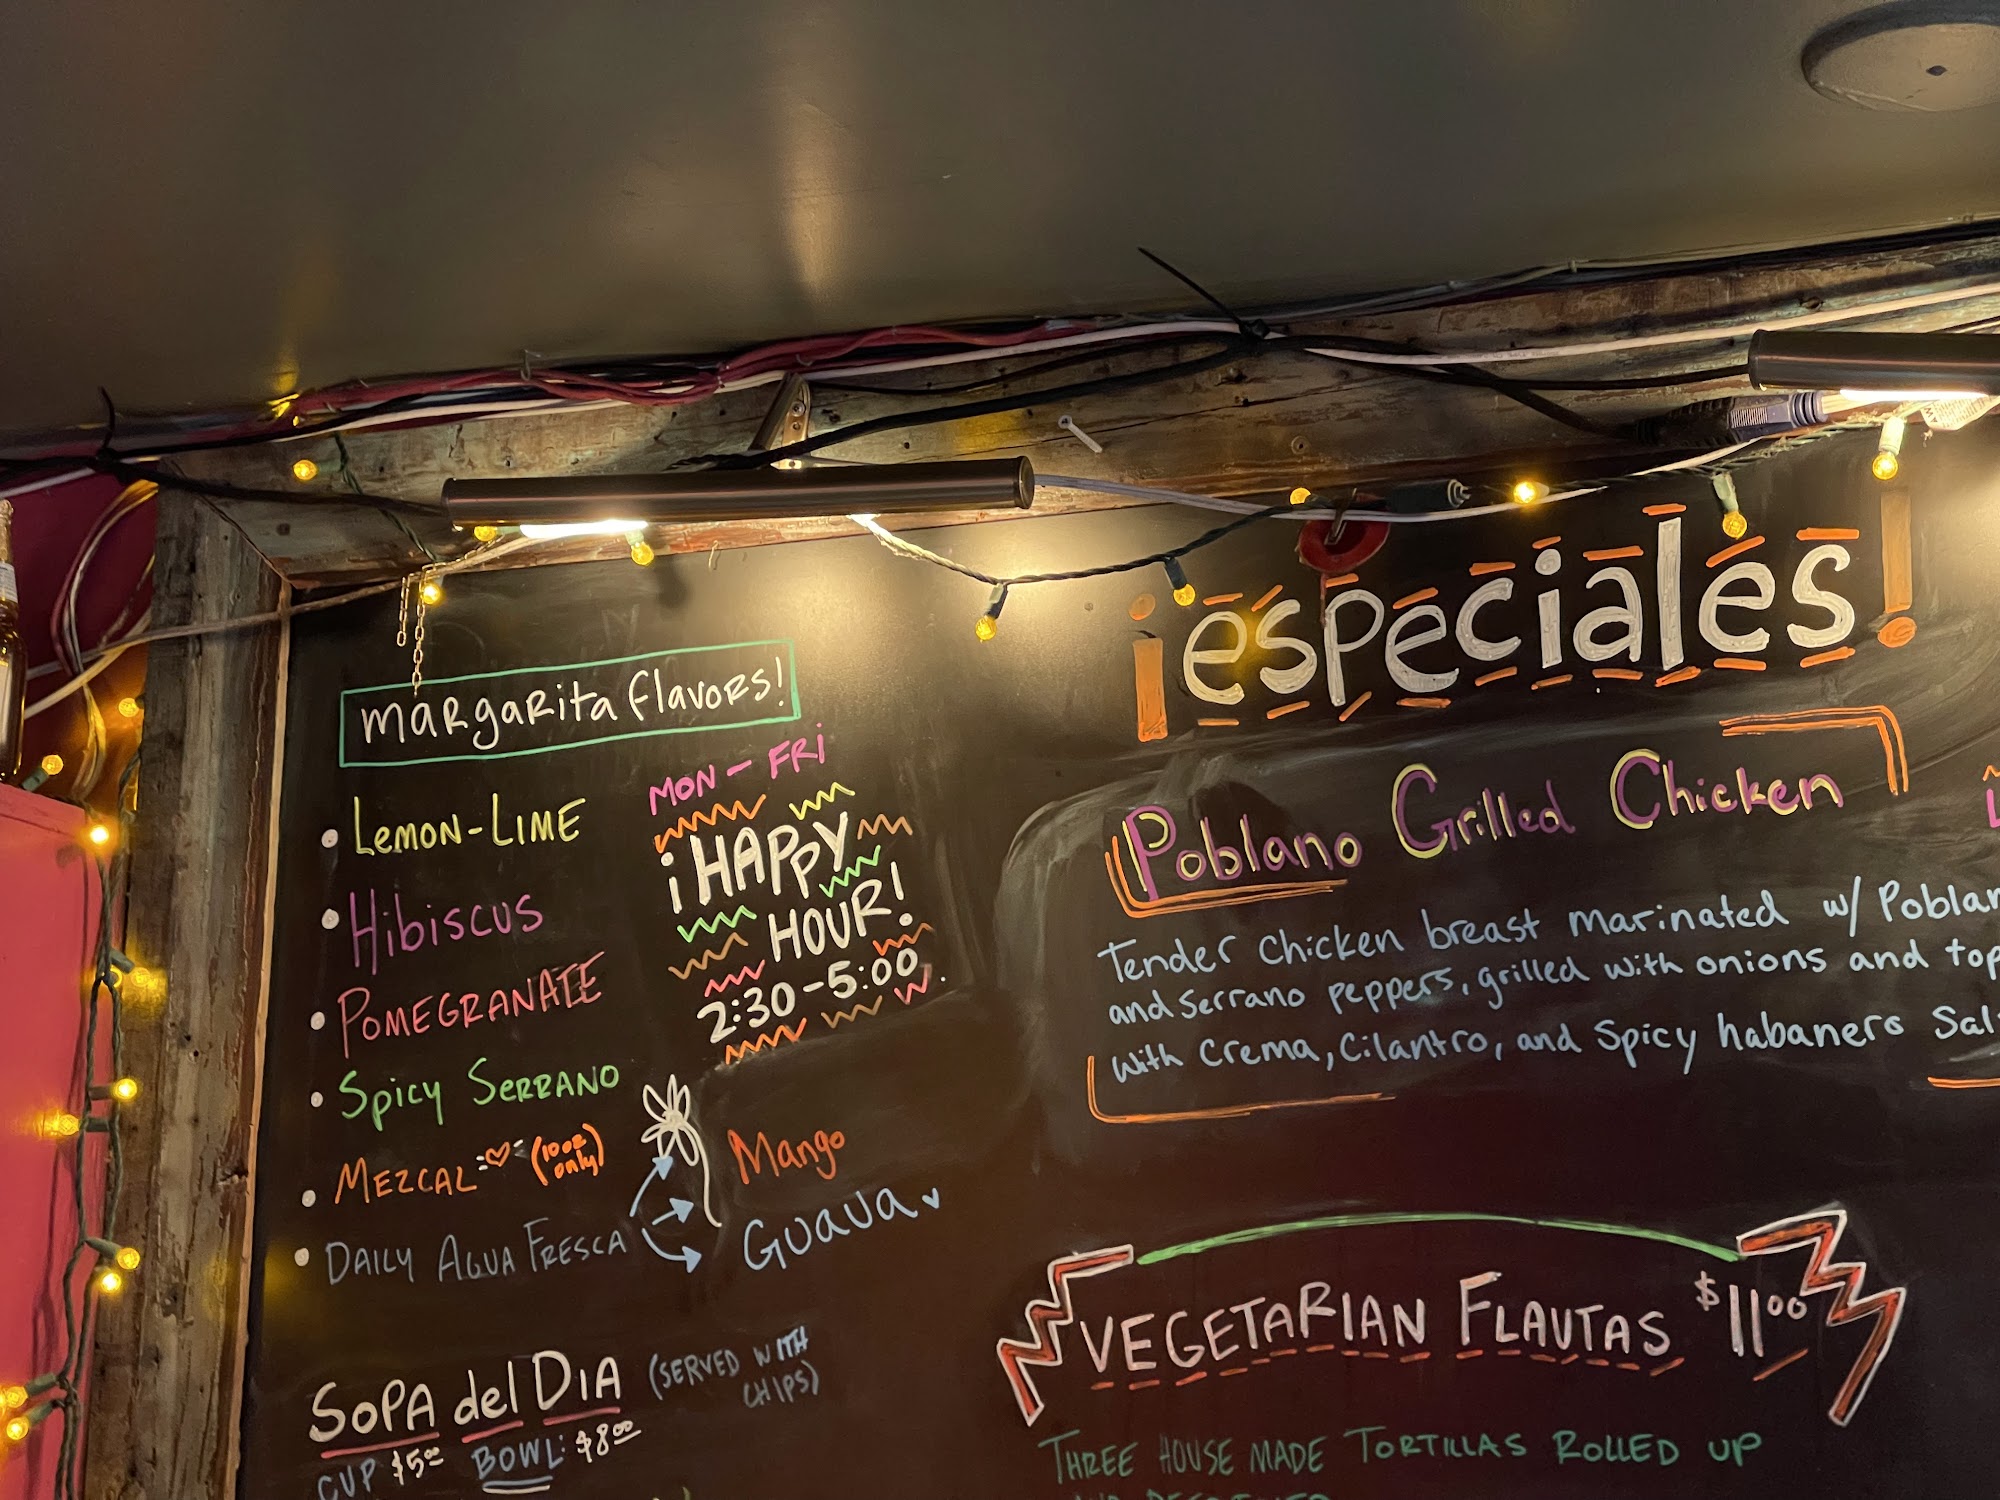 margarita flavors!
Lemon-Lime
Hibiscus
Pomegranate
Spicy Serrano
Mezcal (10oz only)
Daily Agua Fresca
Mango
Guava
MON-FRI
¡HAPPY
HOUR!
2:30-5:00
SOPA del DIA (SERVED WITH CHIPS)
CUP $5.00 BOWL: $8.00
¡especiales!
Poblano Grilled Chicken
Tender chicken breast marinated w/
and serrano peppers, grilled with onions and
with crema, cilantro, and spicy habanero
VEGETARIAN FLAUTAS $11.00
THREE HOUSE MADE TORTILLAS ROLLED UP